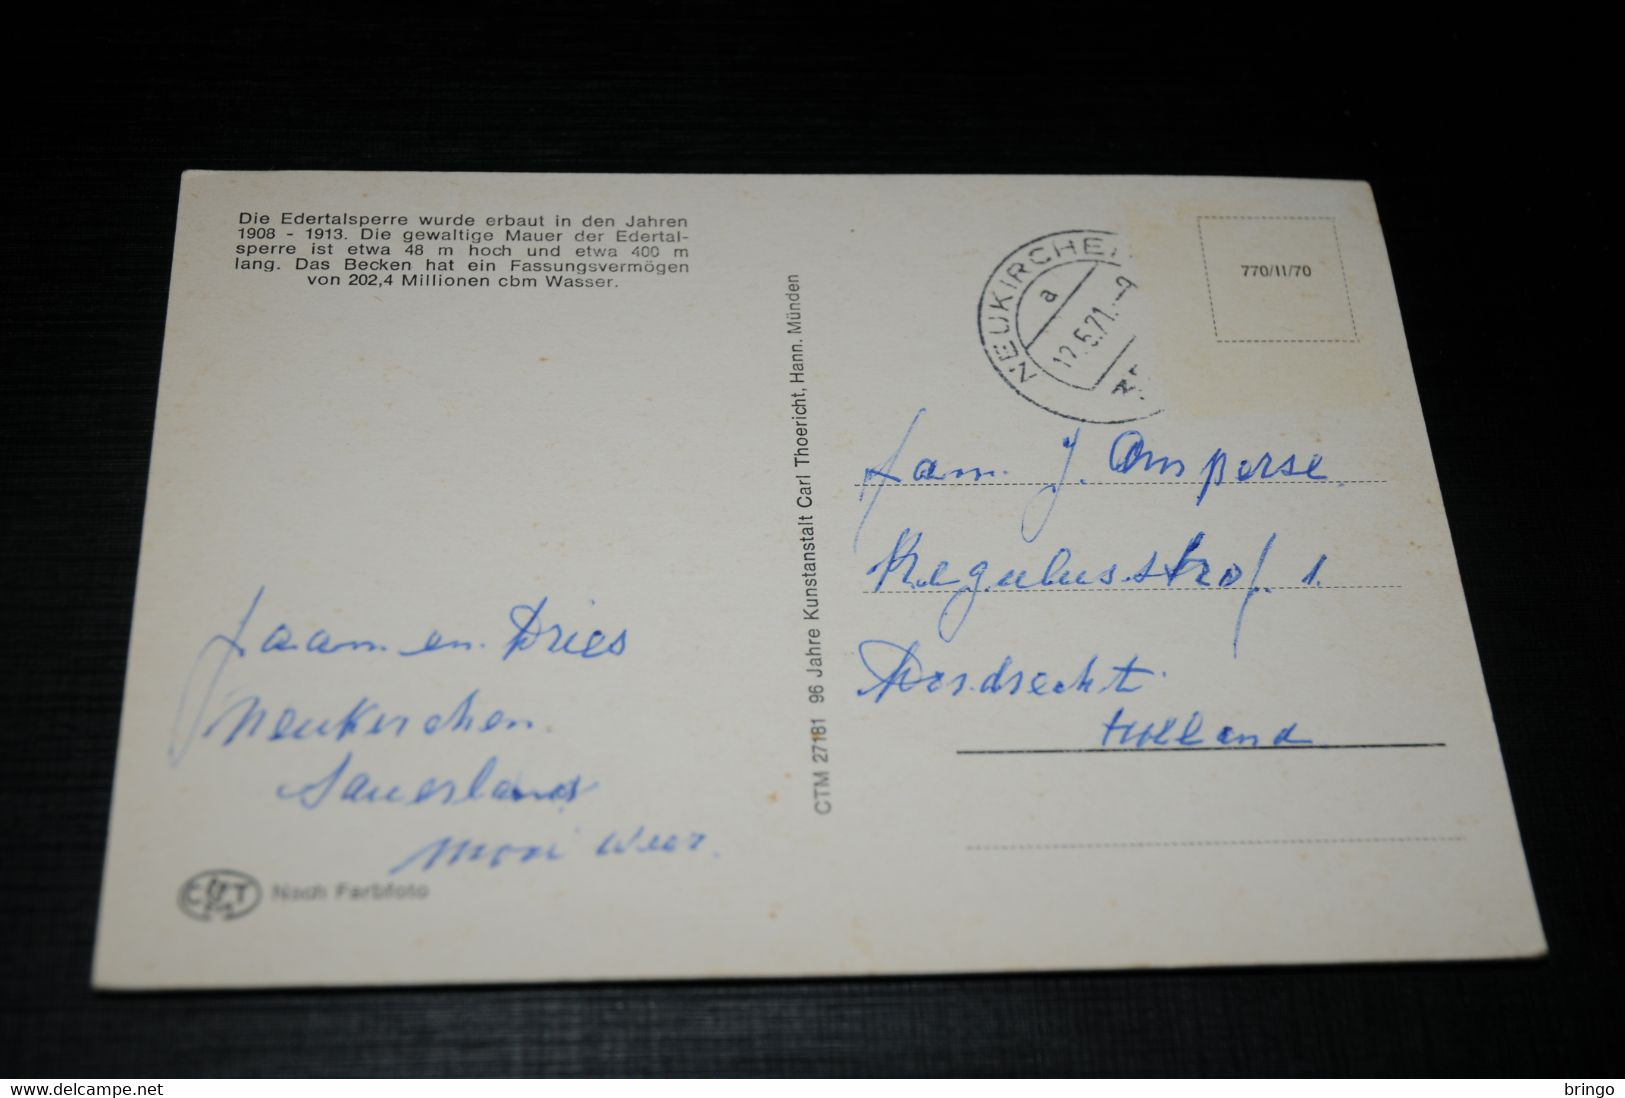 Die Edertalsperre wurde erbaut in den Jahren
1908 - 1913. Die gewaltige Mauer der Edertal-
sperre ist etwa 48 m hoch und etwa 400 m
lang. Das Becken hat ein Fassungsvermögen
von 202,4 Millionen cbm Wasser.
Jaam en Dries
Neukerchen
Sauerland
Mooi Weer.
Nach Farbfoto
CTM 27181 96 Jahre Kunstanstalt Carl Thoericht, Hann. Münden
NEUKIRCHEN
a
12.5.71.-9
770/II/70
Fam. J.
Regulusstrof. 1.
Dordrecht.
Holland
delcampe.net
bringo